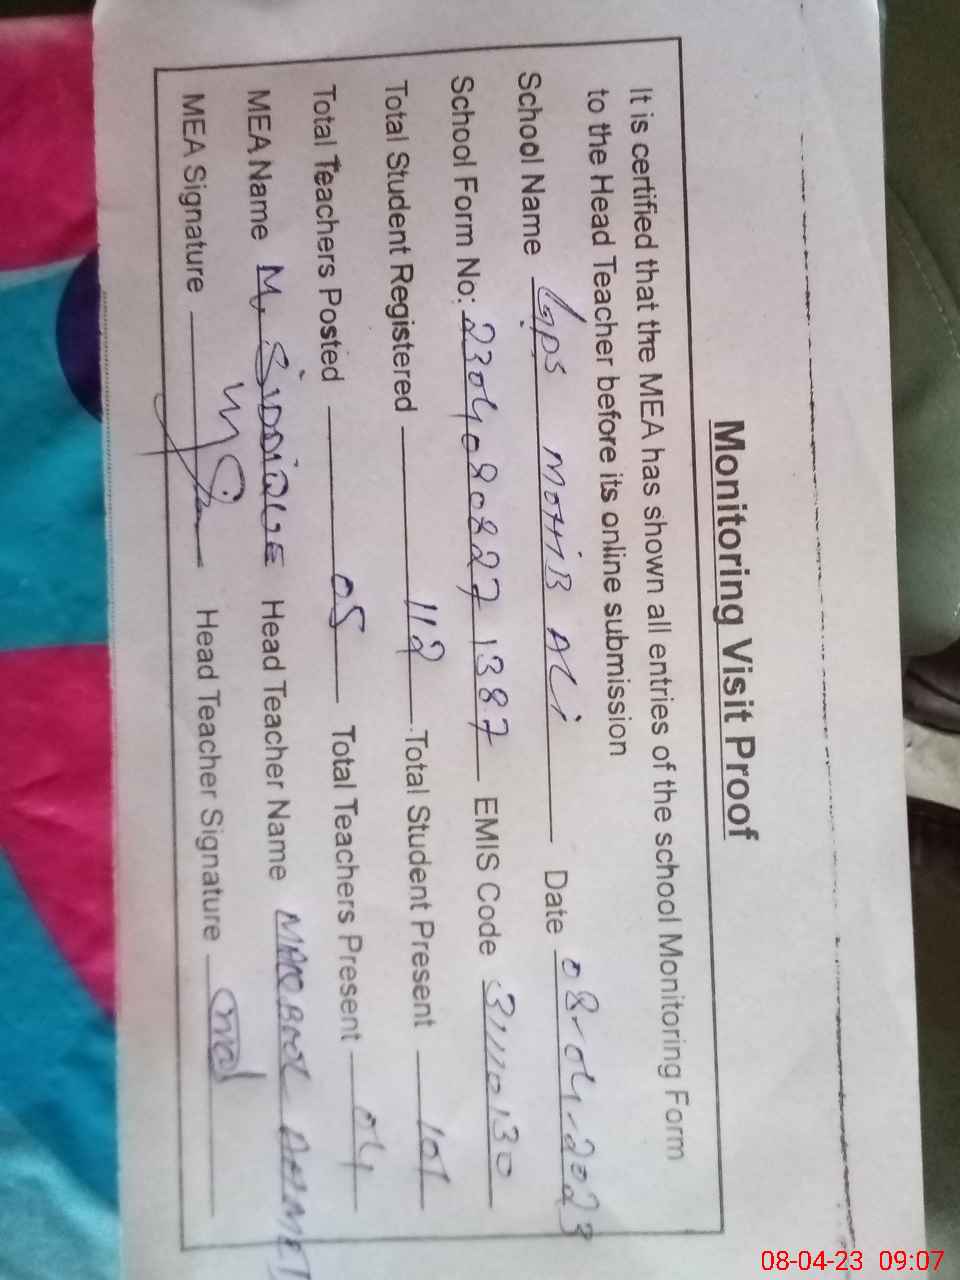 Monitoring Visit Proof
It is certified that the MEA has shown all entries of the school Monitoring Form
to the Head Teacher before its online submission
School Name GPS MOHIB ALi Date 08-04-2023
School Form No: 2304080827 1387 EMIS Code 31110130
Total Student Registered 112 Total Student Present 101
Total Teachers Posted 05 Total Teachers Present 04
MEA Name M. SiDDiQUE Head Teacher Name MAQBOOL AHMED
MEA Signature Head Teacher Signature
08-04-23 09:07